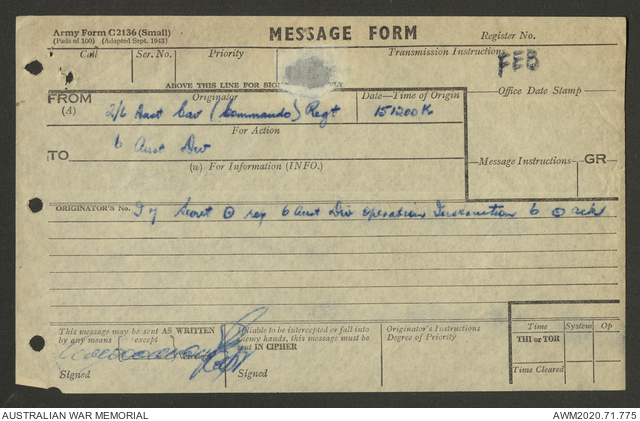 Army Form C2136 (Small)
(Pads of 100) (Adapted Sept. 1943)
MESSAGE FORM
Register No.
Call
Ser. No.
Priority
Transmission Instructions
FEB
ABOVE THIS LINE FOR
FROM
(A)
Originator
2/6 Aust Cav (Commando) Regt
Date—Time of Origin
151200K
Office Date Stamp
For Action
TO
6 Aust Div
(w) For Information (INFO.)
Message Instructions
GR
ORIGINATOR'S No.
Secret 6 Aust Div operation Instruction 6 ack
This message may be sent AS WRITTEN
by any means (except
Signed
If liable to be intercepted or fall into
enemy hands, this message must be
sent IN CIPHER
Signed
Originator's Instructions
Degree of Priority
Time
System
Op
THI or TOR
Time Cleared
AUSTRALIAN WAR MEMORIAL
AWM2020.71.775